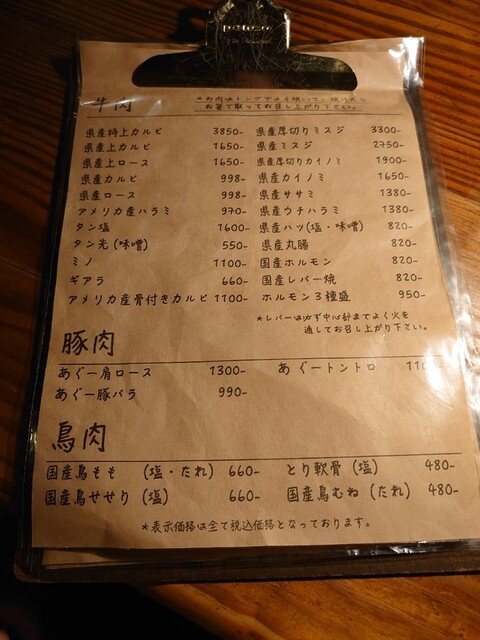 牛肉
*お肉はトングでよく焼いて、焼けたら
お箸で取ってお召し上がり下さい。
県産特上カルビ 3850-
県産上カルビ 1650-
県産上ロース 1650-
県産カルビ 998-
県産ロース 998-
アメリカ産ハラミ 970-
タン塩 1600-
タン先(味噌) 550-
ミノ 1100-
ギアラ 660-
アメリカ産骨付きカルビ 1100-
県産厚切りミスジ 3300-
県産ミスジ 2750-
県産厚切りカイノミ 1900-
県産カイノミ 1650-
県産ササミ 1380-
県産ウチハラミ 1380-
県産ハツ(塩・味噌) 820-
県産丸腸 820-
国産ホルモン 820-
国産レバー焼 820-
ホルモン3種盛 950-
*レバーは必ず中心部までよく火を
通してお召し上がり下さい。
豚肉
あぐー肩ロース 1300-
あぐー豚バラ 990-
あぐートントロ
鳥肉
国産鳥もも (塩・たれ) 660-
国産鳥せせり (塩) 660-
とり軟骨 (塩) 480-
国産鳥むね (たれ) 480-
*表示価格は全て税込価格となっております。